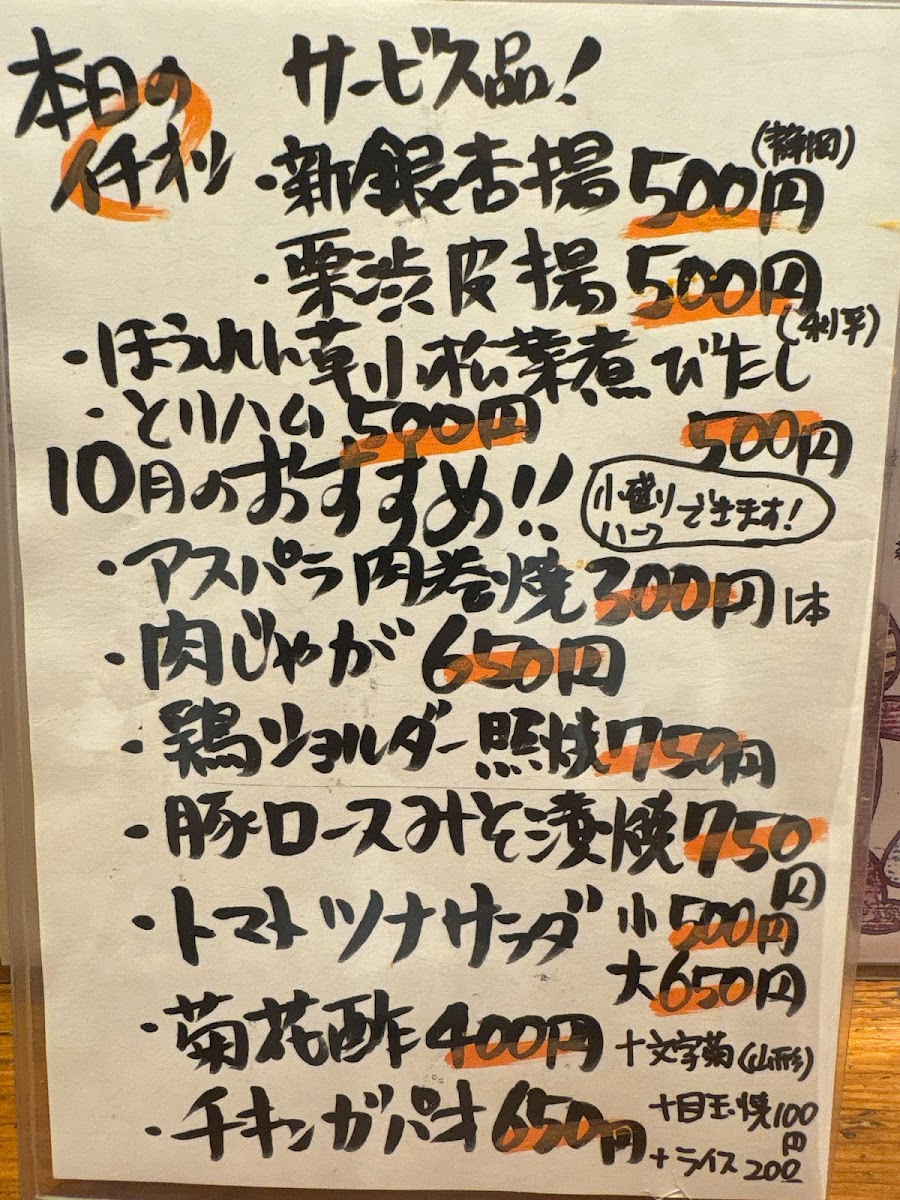 本日の
イチオシ
サービス品!
・新銀杏揚 500円 (静岡)
・栗渋皮揚 500円 (利平)
・ほうれん草小松菜煮びたし 500円
・とりハム 500円
10月のおすすめ!!
小盛り ハーフ できます!
・アスパラ肉巻焼 300円 1本
・肉じゃが 650円
・鶏ショルダー照焼 750円
・豚ロースみそ漬焼 750円
・トマトツナサラダ 小500円
大650円
・菊花酢 400円 十文字菊(山形)
・チキンガパオ 650円 +目玉焼100円
+ライス200